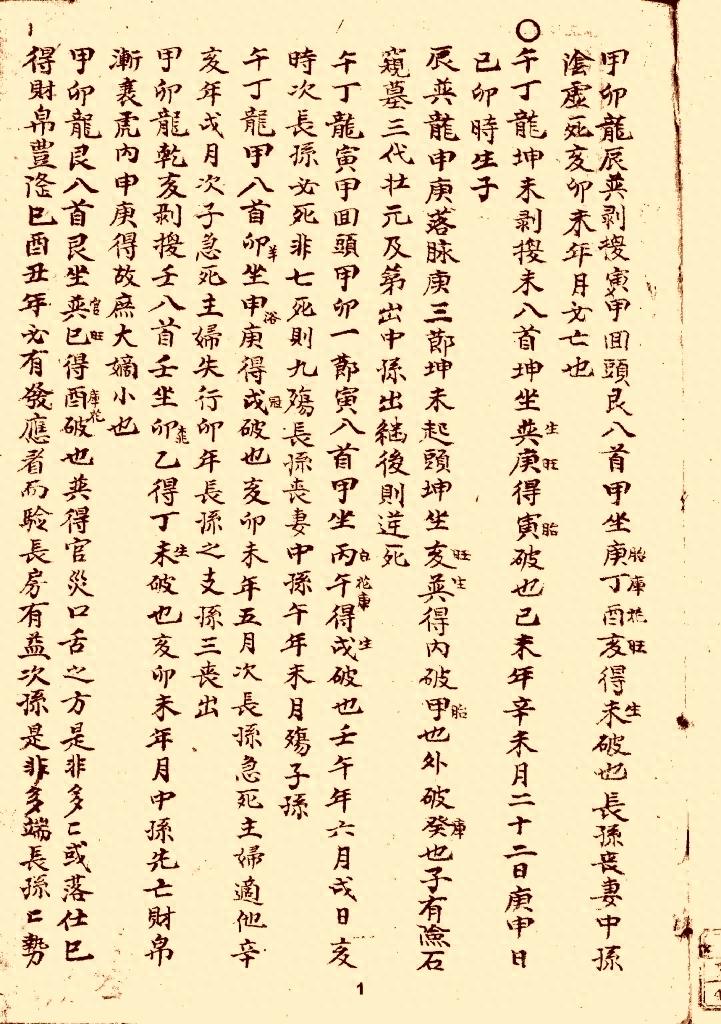 甲卯龍辰巽剥換寅甲回頭艮八首甲坐庚胎丁庫酉花亥旺得未生破也長孫喪妻中孫
陰虛死亥卯未年月必亡也
○午丁龍坤未剥換未八首坤坐巽生庚旺得寅胎破也己未年辛未月二十二日庚申日
己卯時生子
辰巽龍申庚落脉庚三節坤未起頭坤坐亥旺巽生得內破甲胎也外破癸庫也子有險石
窺墓三代壮元及第出中孫出継後則逆死
午丁龍寅甲回頭甲卯一節寅八首甲坐丙午得戌生破也壬午年六月戌日亥
時次長孫必死非七死則九殤長孫喪妻中孫午年未月殤子孫
午丁龍甲八首卯坐申庚浴得戌冠破也亥卯未年五月次長孫急死主婦適他辛
亥年戌月次子急死主婦失行卯年長孫之支孫三喪出
甲卯龍乾亥剥換壬八首壬坐卯乙得丁未生破也亥卯未年月中孫先亡財帛
漸衰虎內申庚得故庶大嫡小也
甲卯龍艮八首艮坐巽官巳旺得酉庫花破也巽得官災口舌之方是非多匕或落仕巳
得財帛豊隆巳酉丑年必有發應者而驗長房有益次孫是非多端長孫匕勢
1